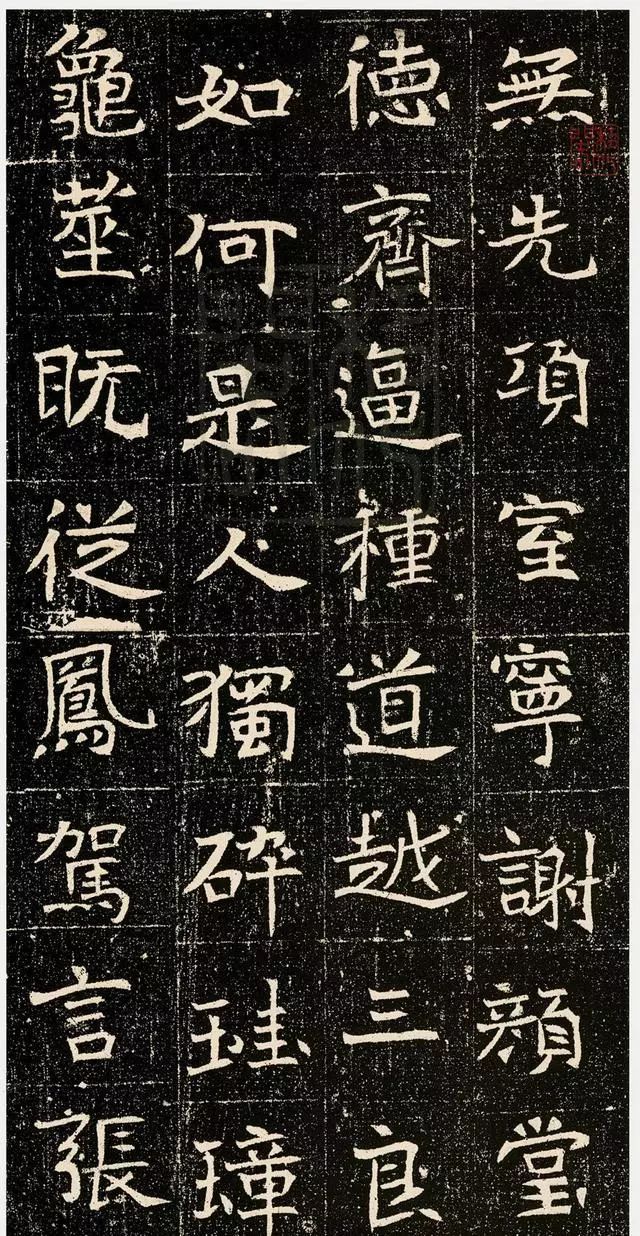 無先項室寧謝顔堂
徳齊逼種道越三良
如何是人獨碎珪璋
龜莁既從鳳駕言張